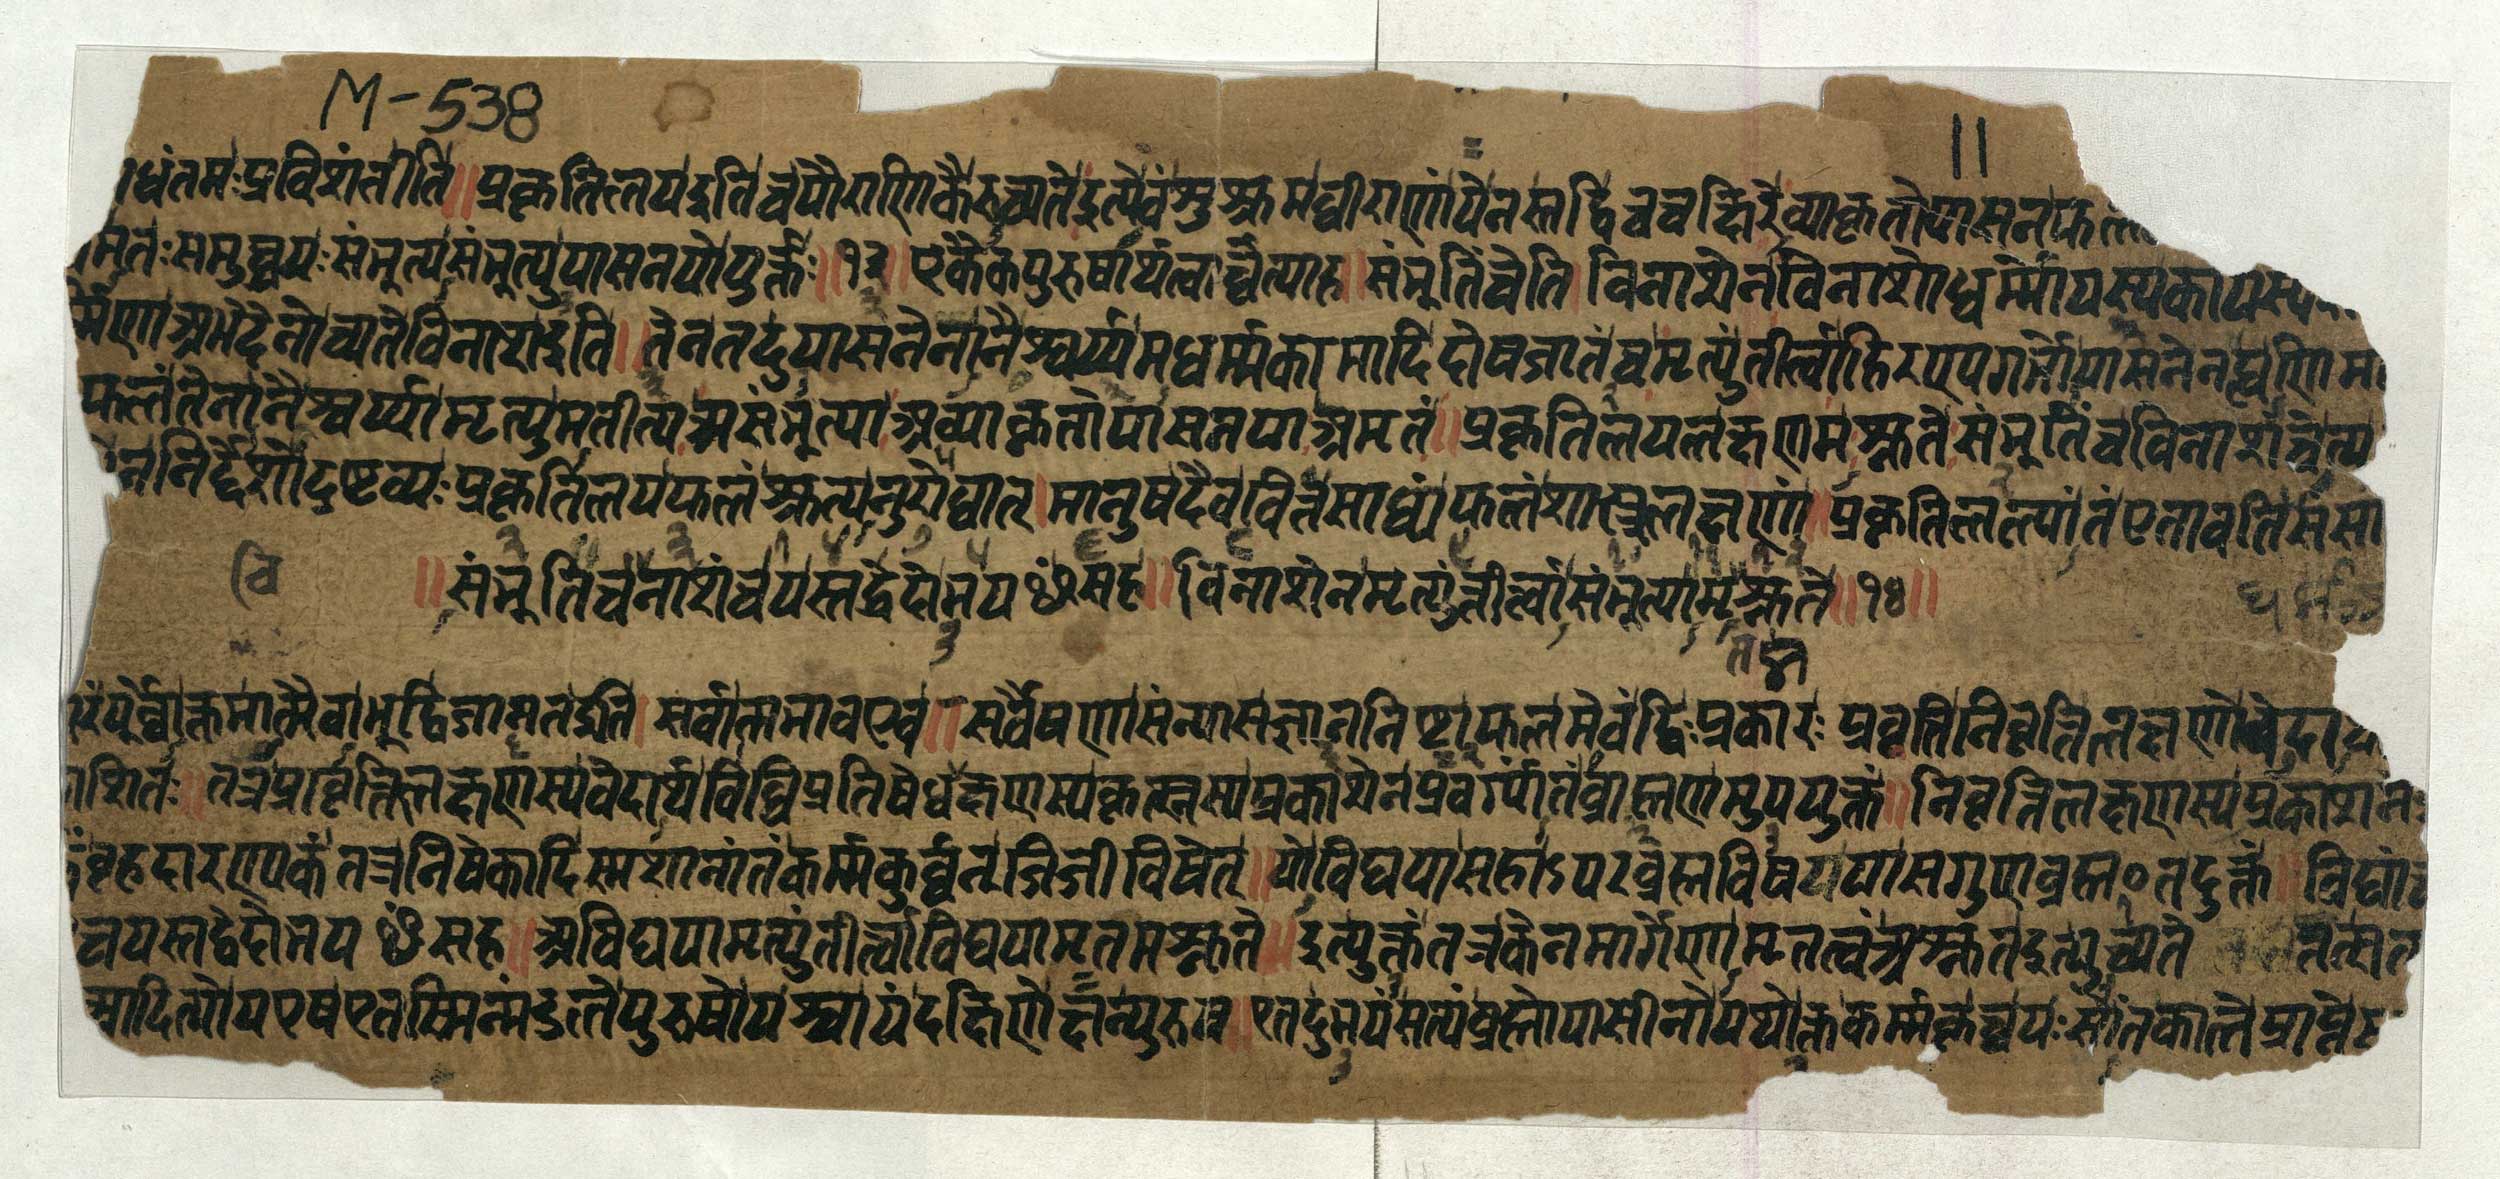 M-538
11
धंतमः प्रविशंतीति ॥ प्रकृतिलय इति च पौराणिकैरुच्यते इत्येवं शुश्रुम धीराणां ये नस्तद्विचचक्षिरे व्याकृतोपासनफ
मतः समुच्चयः संभूत्यसंभूत्युपासनयोर्युक्तः ॥१३॥ एकैकपुरुषार्थत्वाच्चेत्याह ॥ संभूतिं चेति । विनाशेन विनाशो धर्म्मो यस्य कार्यस्य
र्मिणा अभेदेनोच्यते विनाश इति ॥ तेन तदुपासनेनानैश्वर्य्यमधर्म्मकामादिदोषजातं च मृत्युं तीर्त्वा हिरण्यगर्भोपासनेन ह्यणिम
फलं तेनानैश्वर्य्यामृत्युमतीत्य असंभूत्या अव्याकृतोपासनया अमृतं ॥ प्रकृतिलयलक्षणमश्नुते संभूतिं च विनाशं चेत्य
न निर्द्देशो दृष्टव्यः प्रकृतिलयफलं श्रुत्यनुरोधात् । मानुषदैववित्तसाध्यं फलं शास्त्रलक्षणं ॥ प्रकृतिलयांतं एतावती संसा
वि
॥ संभूतिं च नाशं च यस्तद्वेदोभयꣳ सह ॥ विनाशेन मृत्युं तीर्त्वा संभूत्यामृतमश्नुते ॥१४॥
पूर्वोक्तमात्मैवाभूद्विजानत इति । सर्वात्मभाव एव ॥ सर्वैषणासंन्यासज्ञाननिष्टाफलमेवं द्विःप्रकारः प्रवृत्तिनिवृत्तिलक्षणो वेदा
शितः ॥ तत्र प्रवृत्तिलक्षणस्य वेदार्थविधिप्रतिषेधक्षणस्य कृत्स्नस्य प्रकाशेन प्रवर्ग्यांतं ब्राह्मणमुपयुक्तं ॥ निवृत्तिलक्षणस्य प्रकाशन
बृहदारण्यकं तत्र निषेकादिस्मशानांतं कर्म्म कुर्व्वन् जिजीविषेत् ॥ यो विद्यया सहाऽपरब्रह्मविषयया सगुणब्रह्म० तदुक्तं ॥ विद्यां
च यस्तद्वेदोभयꣳ सह ॥ अविद्यया मृत्युं तीर्त्वा विद्ययामृतमश्नुते ॥ इत्युक्तं तत्र केन मार्गेणामृतत्वं अश्नुत इत्युच्यते
आदित्यो य एष एतस्मिन्मंडले पुरुषो यश्चायं दक्षिणेक्षन्पुरुष ॥ एतदुभयं सत्यं ब्रह्मोपासीनो यथोक्तकर्म्मकृच्च यः सोंतकाले प्राप्ते